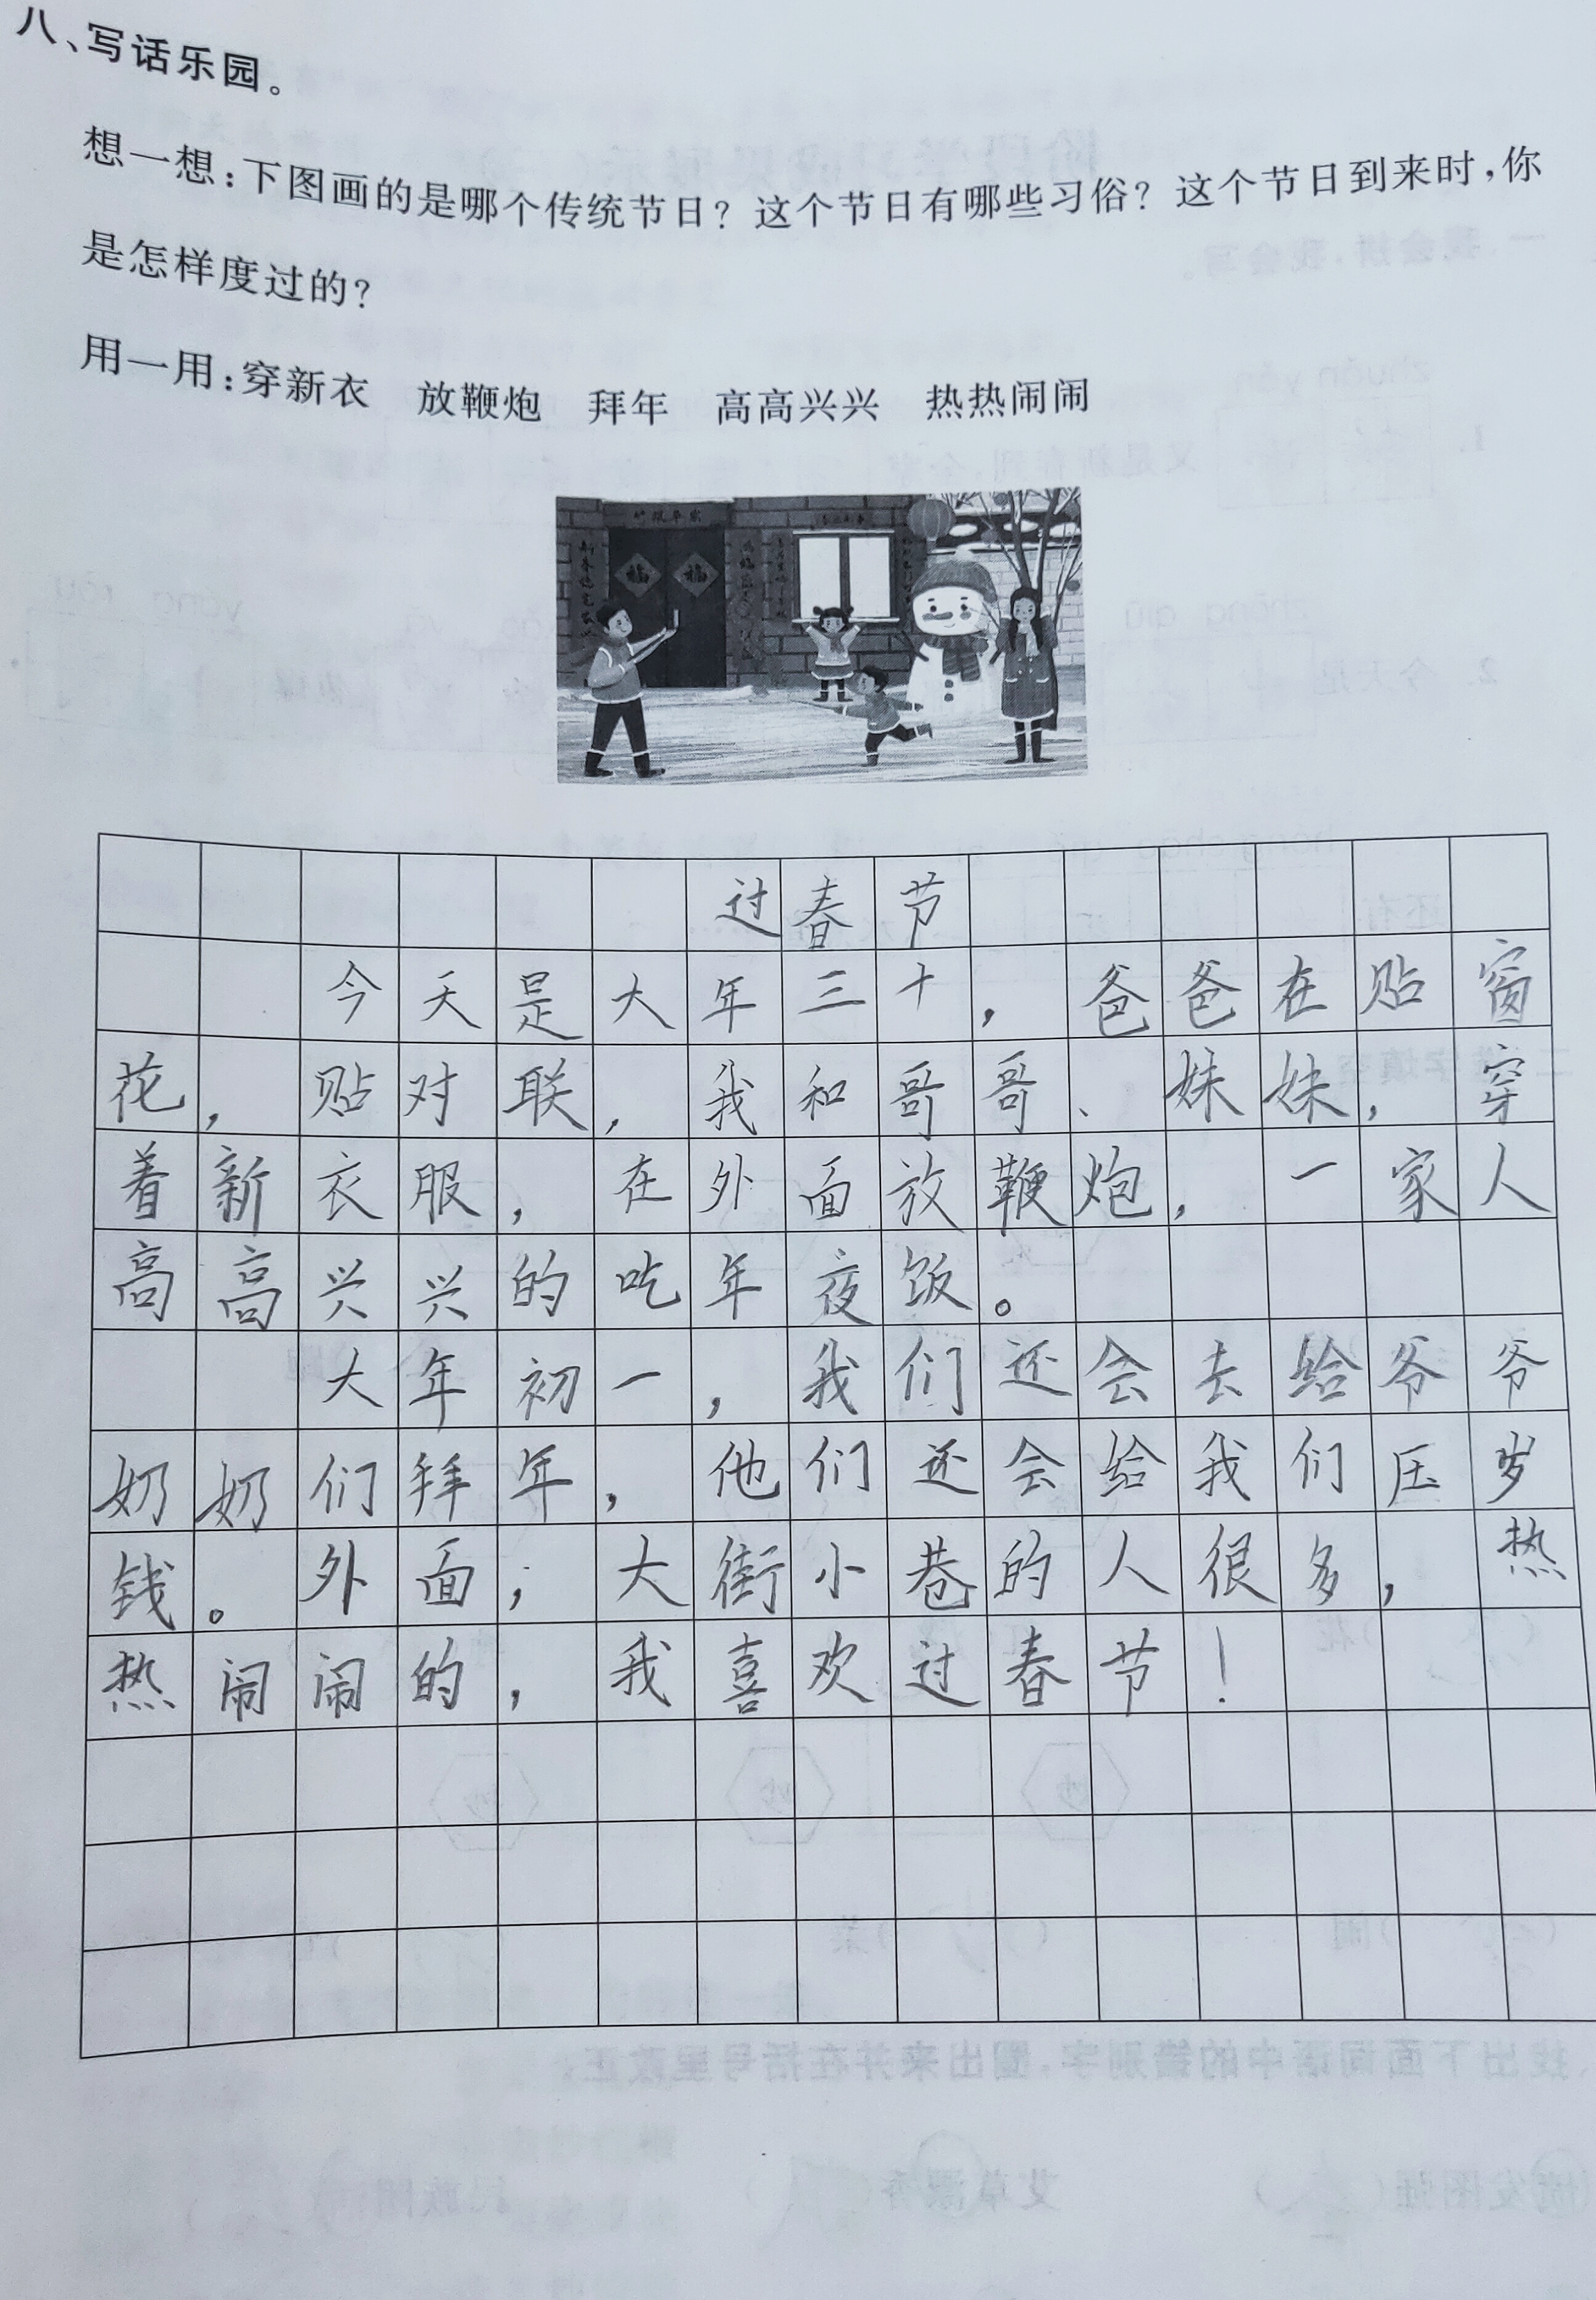 八、写话乐园。
想一想：下图画的是哪个传统节日？这个节日有哪些习俗？这个节日到来时，你
是怎样度过的？
用一用：穿新衣　放鞭炮　拜年　高高兴兴　热热闹闹
福 福
过春节
今天是大年三十，爸爸在贴窗
花，贴对联，我和哥哥、妹妹，穿
着新衣服，在外面放鞭炮，一家人
高高兴兴的吃年夜饭。
大年初一，我们还会去给爷爷
奶奶们拜年，他们还会给我们压岁
钱。外面；大街小巷的人很多，热
热闹闹的，我喜欢过春节！